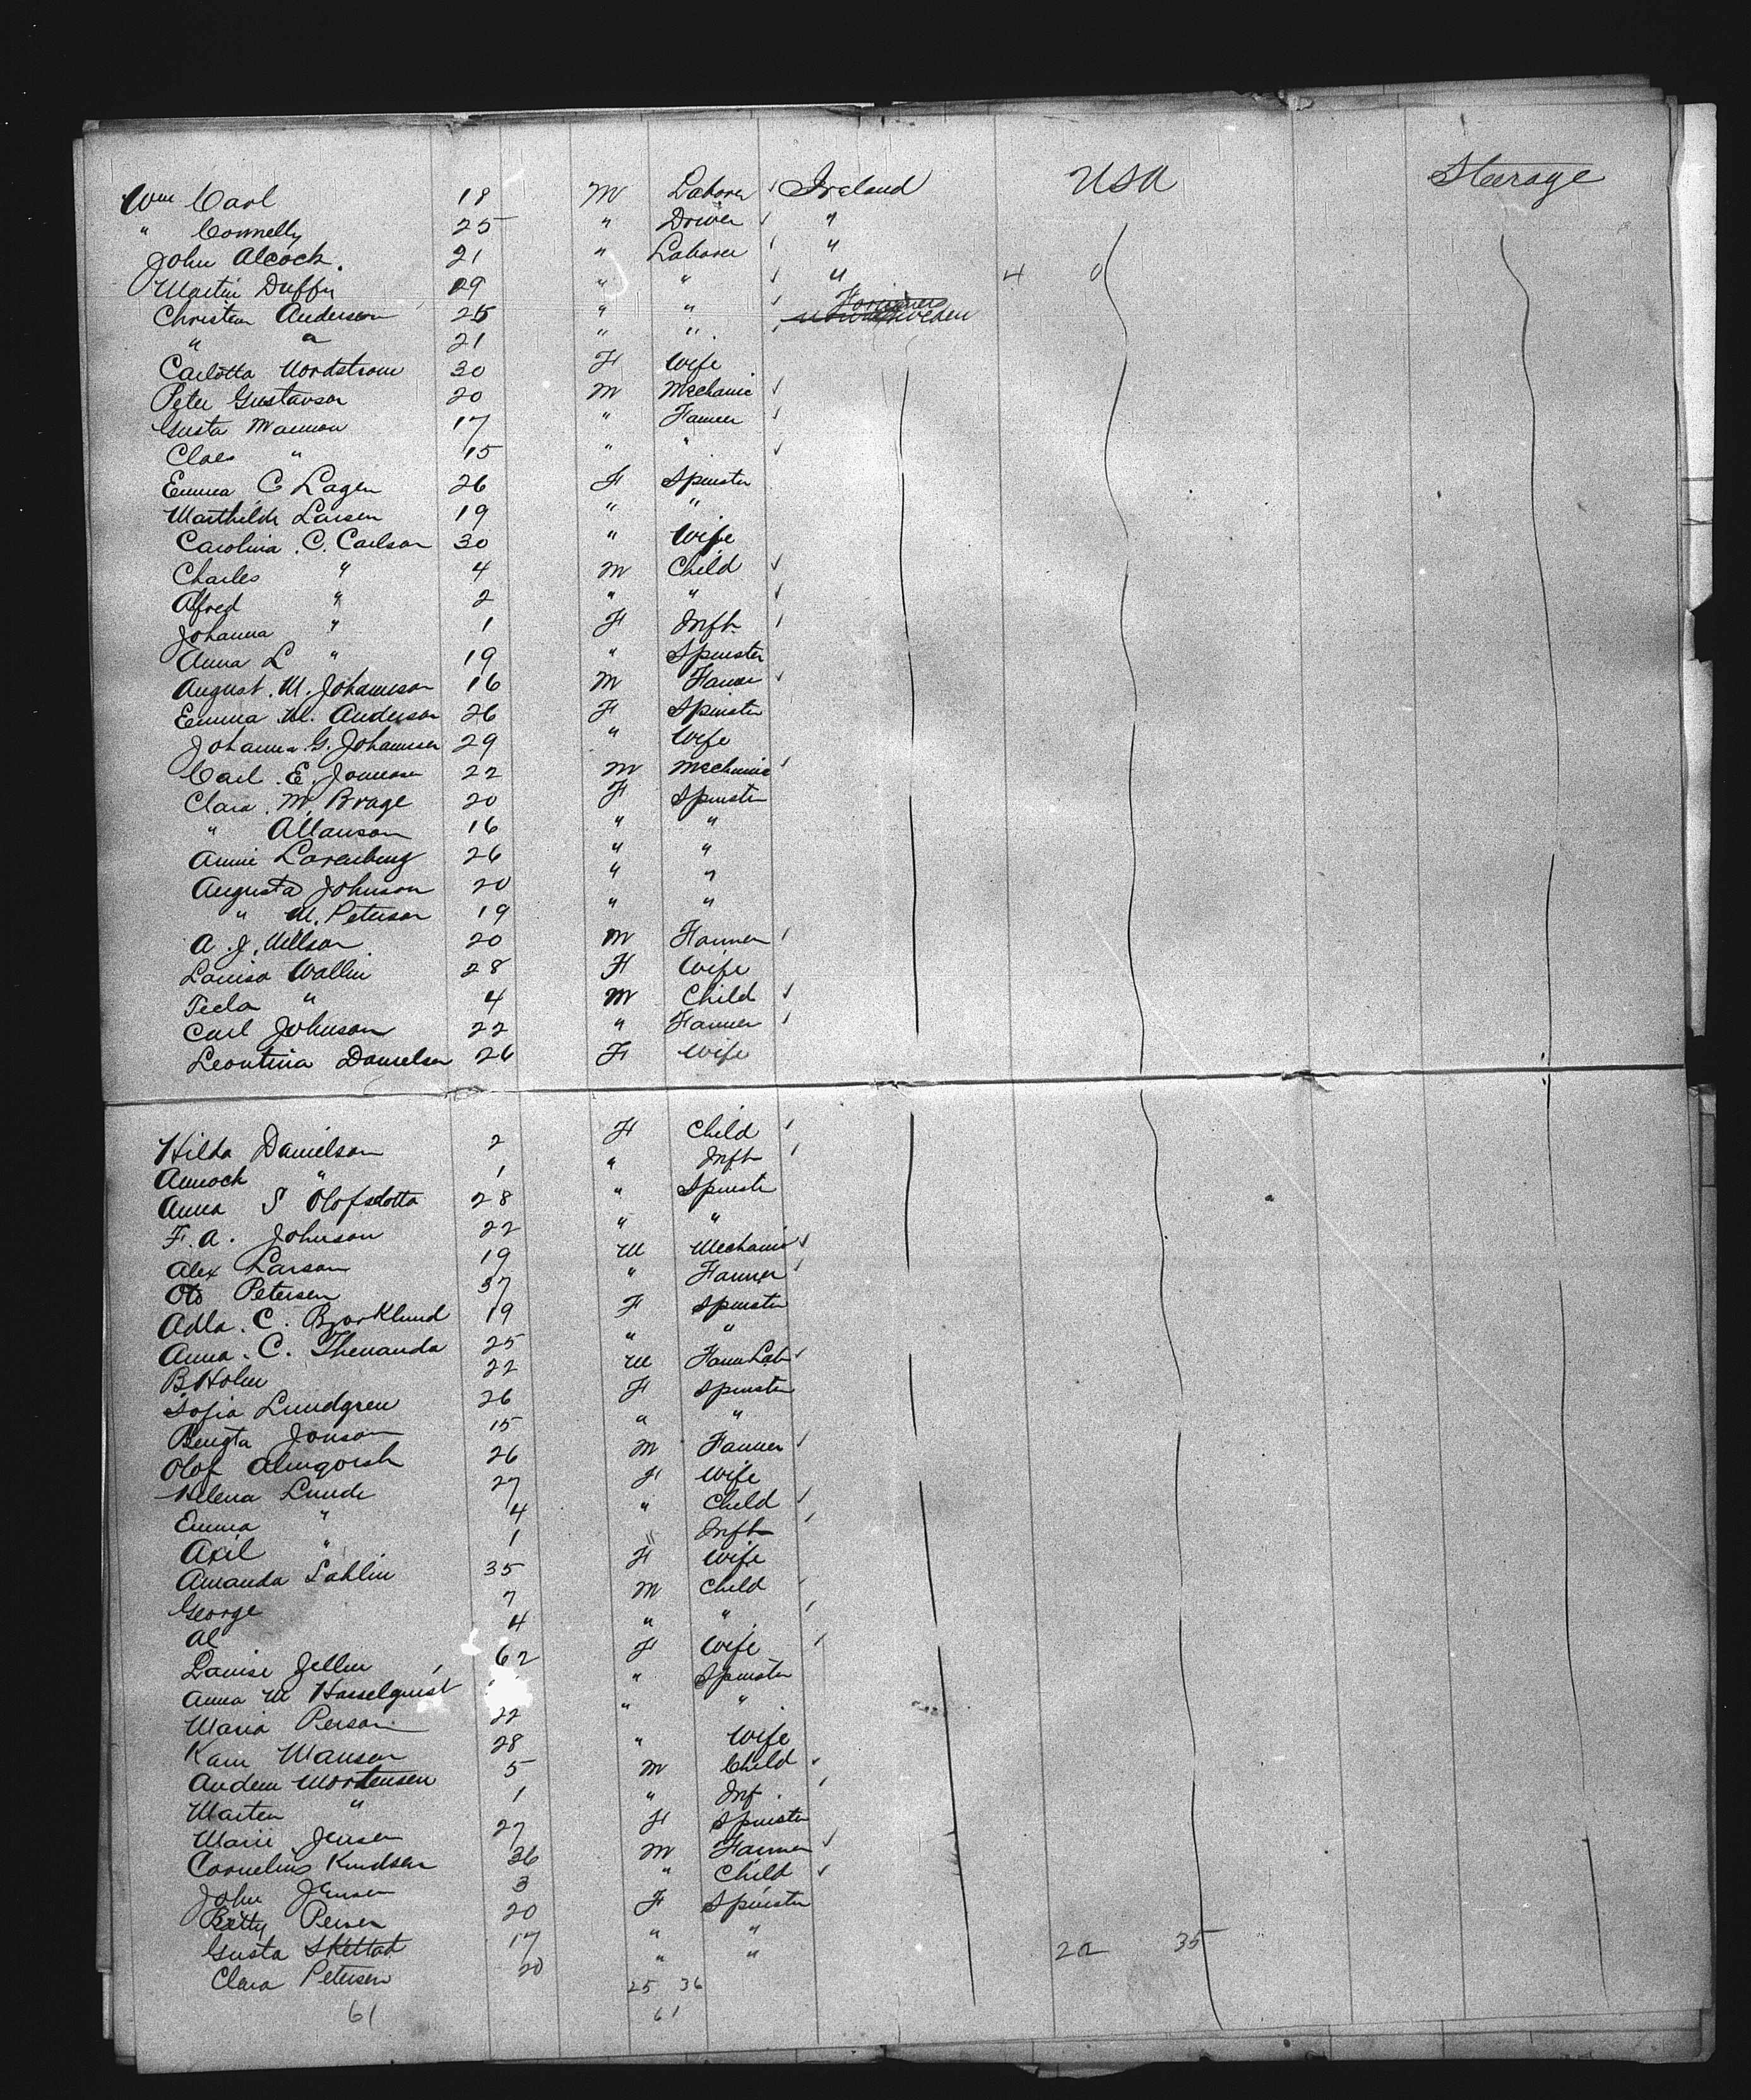 Wm Carl 18 M Laborer ✓ Ireland USA Steerage
" Connelly 25 " Driver ✓ "
John Alcock. 21 " Laborer ✓ "
Martin Duffy 29 " " ✓ " 4 0
Christian Anderson 25 " " ✓ Sweden
" " 21 " " ✓
Carlotta Nordstrom 30 F Wife
Peter Gustavson 20 M Mechanic ✓
Gusta Manson 17 " Farmer ✓
Claes " 15 " " ✓
Emma C Lagen 26 F Spinster
Marthilde Larsen 19 " "
Carolina C. Carlson 30 " Wife
Charles " 4 M Child ✓
Alfred " 2 " " ✓
Johanna " 1 F Inft ✓
Anna L " 19 " Spinster
August. M. Johanson 16 M Farmer ✓
Emma M. Anderson 26 F Spinster
Johanna G. Johannsen 29 " Wife
Carl E. 22 M Mechanic ✓
Clara M. Brage 20 F Spinster
" Allanson 16 " "
Annie 26 " "
Augusta Johnson 20 " "
" M. Peterson 19 " "
A. J. Nillson 20 M Farmer ✓
Louisa Wallin 28 F Wife
Tecla " 4 M Child ✓
Carl Johnson 22 " Farmer ✓
Leontina Danielson 26 F Wife
Hilda Danielson 2 F Child ✓
" 1 " Inft ✓
Anna S Olofsdotta 28 " Spinster
F. A. Johnson 22 " "
Alex Larson 19 M Mechanic ✓
Oto Petersen 37 " Farmer ✓
Adla. C. Bjorklund 19 F Spinster
Anna. C. 25 " "
B Holm 22 M Farm Lab ✓
Sofia Lundgren 26 F Spinster
Bengta Jonson 15 " "
Olof 26 M Farmer ✓
Helena Lunde 27 F Wife
Emma " 4 " Child ✓
Axil " 1 " Inft ✓
Amanda Sahlin 35 F Wife
George 7 M Child ✓
Al 4 " " ✓
Louise Zellin 62 F Wife ✓
Anna M Hasselquist " Spinster
Maria Person 22 " "
Karn Manson 28 " Wife
Andern Mortensen 5 M Child ✓
Marten " 1 " Inf. ✓
Marie Jensen 27 F Spinster
Cornelius Knudsen 36 M Farmer ✓
John Jensen 3 " Child ✓
Betty Persen 20 F Spinster
Gusta Skettat 17 " "
Clara Petersen 20 " " 22 35
25 36
61 61